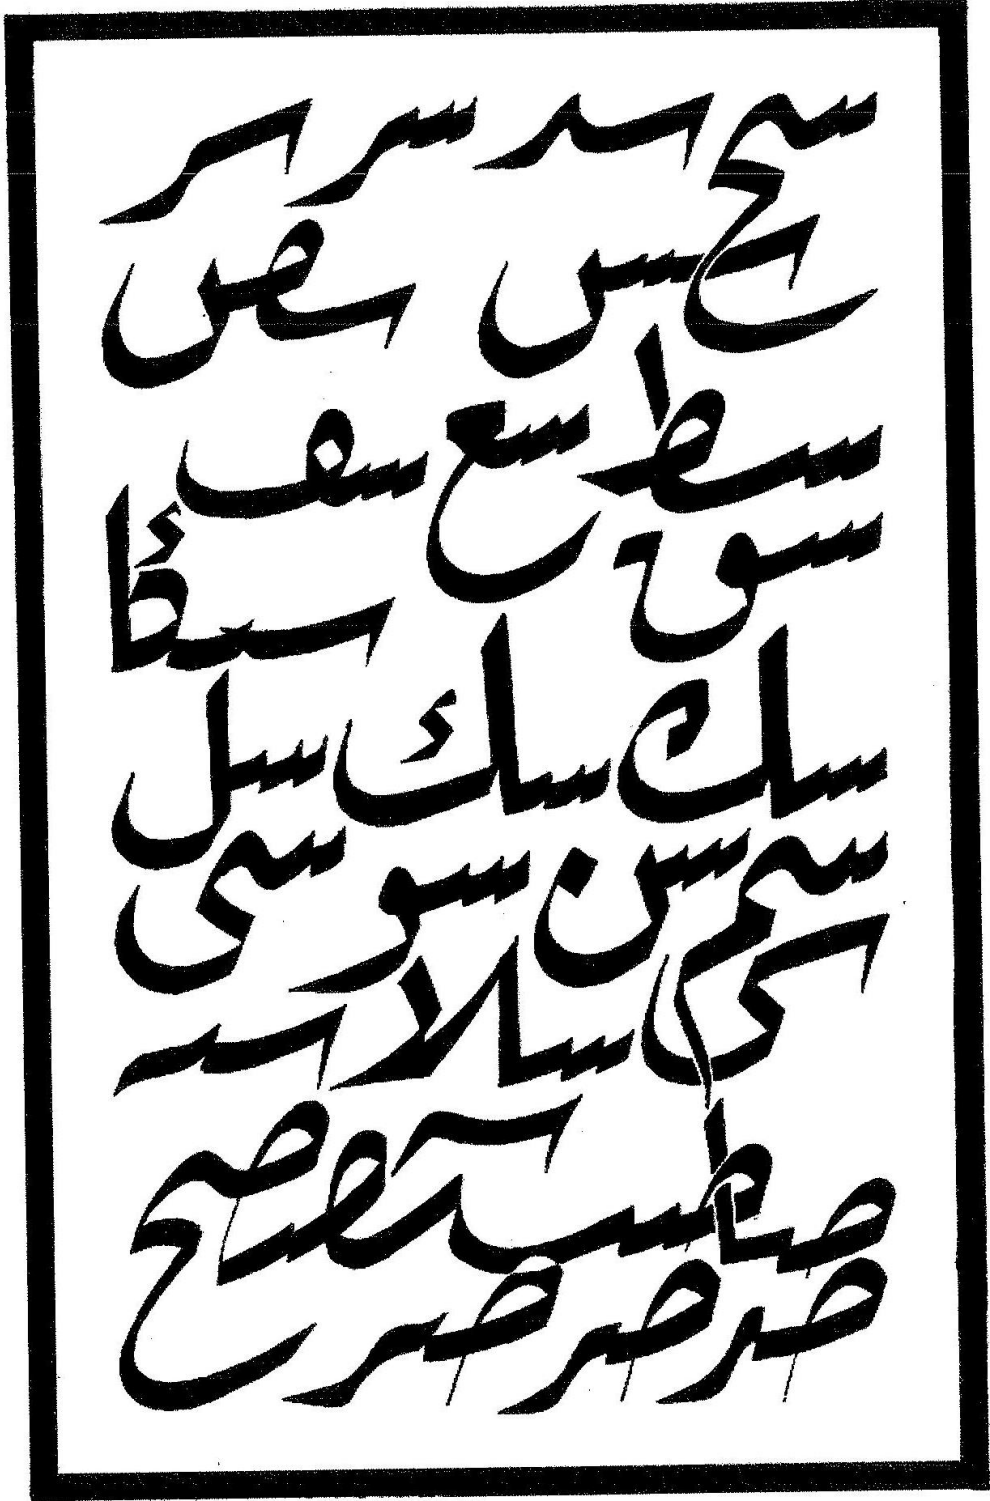 سح سد سر سر
سس سص
سط سع سف
سق سكا
سك سك سل
سم سن سو سى
سى سلا سه
صا
صد صر صر